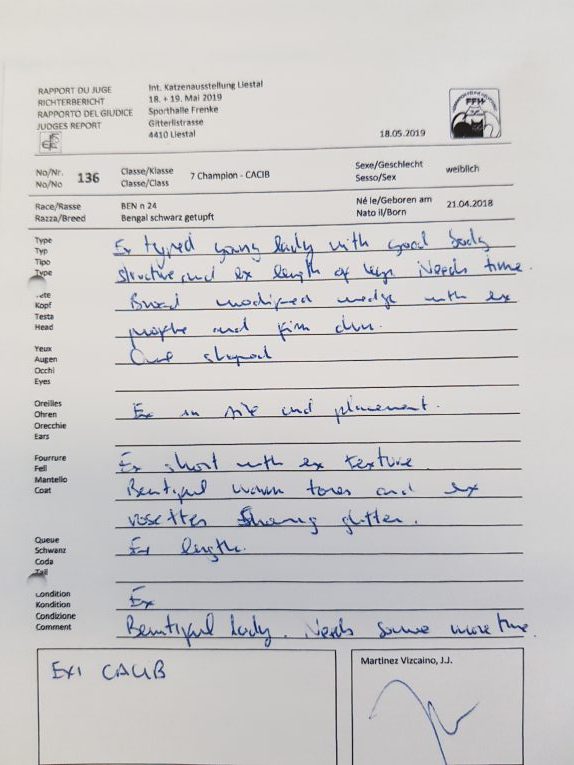 RAPPORT DU JUGE
RICHTERBERICHT
RAPPORTO DEL GIUDICE
JUDGES REPORT
Int. Katzenausstellung Liestal
18. + 19. Mai 2019
Sporthalle Frenke
Gitterlistrasse
4410 Liestal
FFH
18.05.2019
No/Nr. 136
No/No
Classe/Klasse 7 Champion - CACIB
Classe/Class
Sexe/Geschlecht weiblich
Sesso/Sex
Race/Rasse BEN n 24
Razza/Breed Bengal schwarz getupft
Né le/Geboren am 21.04.2018
Nato il/Born
Type
Typ
Tipo
Type
Ex typed young lady with good body
structure and ex length of legs. Needs time.
Kopf
Testa
Head
Broad modified wedge with ex
profile and firm chin.
Yeux
Augen
Occhi
Eyes
Oval shaped
Oreilles
Ohren
Orecchie
Ears
Ex in size and placement.
Fourrure
Fell
Mantello
Coat
Ex short with ex texture.
Beautiful warm tones and ex
rosettes glitter.
Queue
Schwanz
Coda
Tail
Ex length.
Condition
Kondition
Condizione
Comment
Ex
Beautiful lady. Needs some more time.
EX1 CACIB
Martinez Vizcaino, J.J.